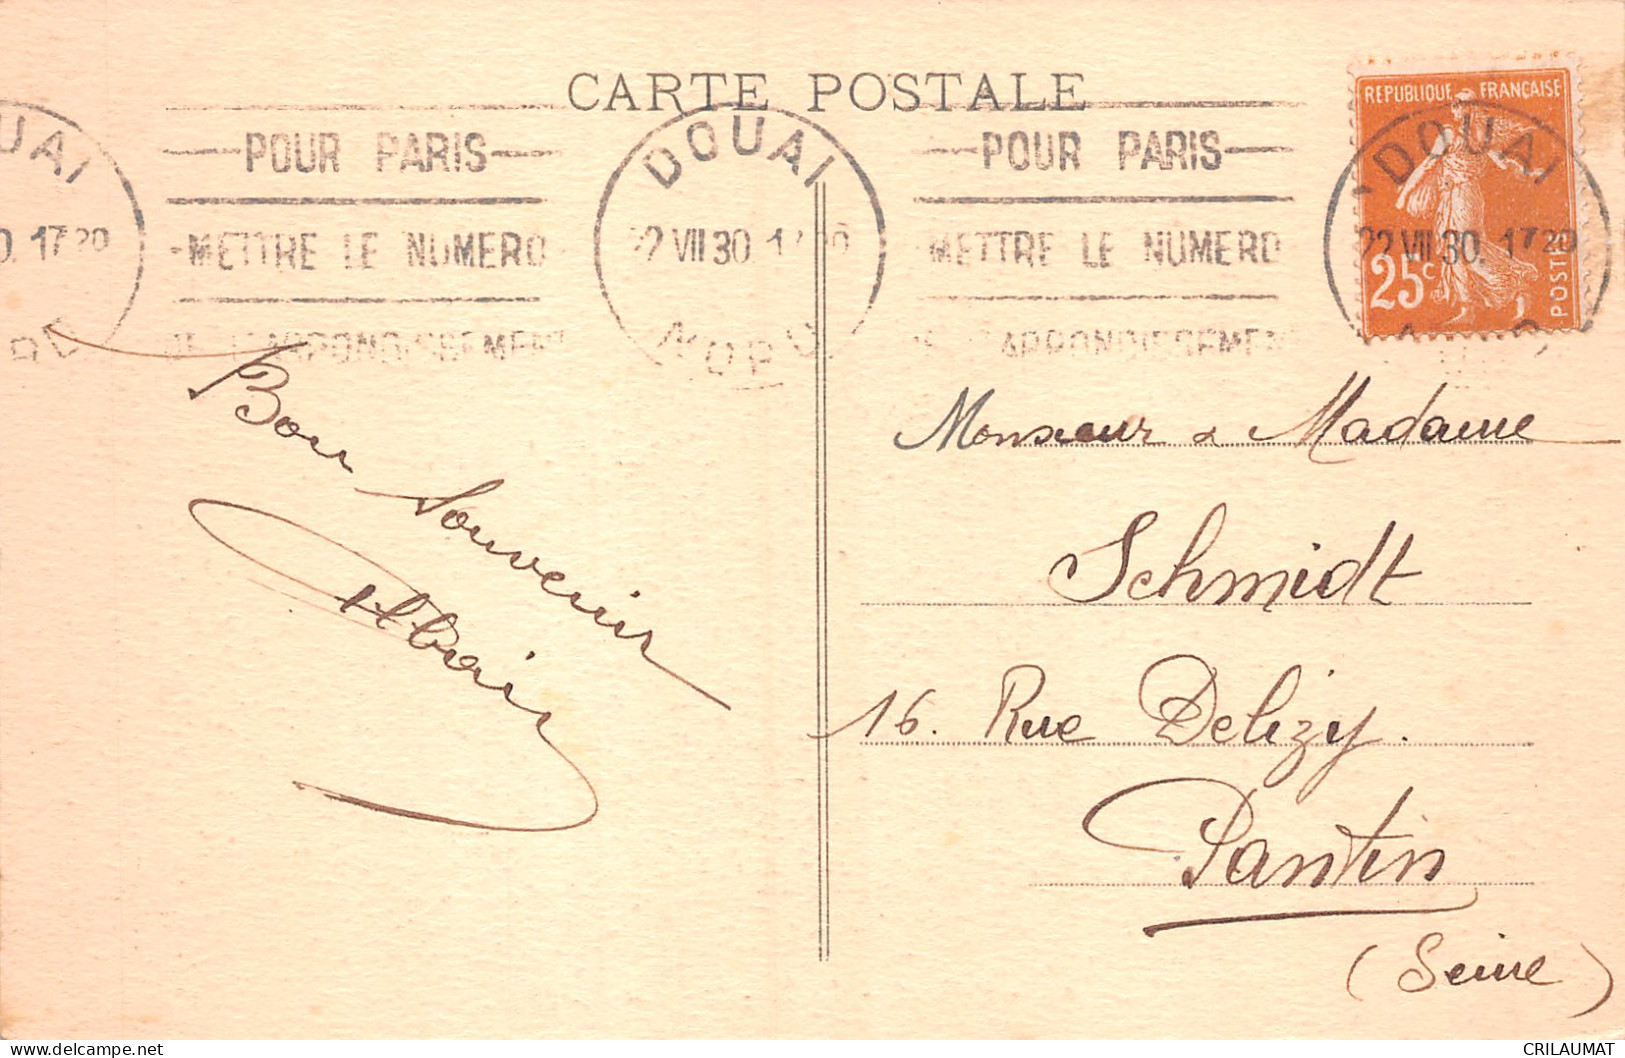 CARTE POSTALE
REPUBLIQUE FRANÇAISE
25c
POSTES
DOUAI
22 VII 30. 17 20
DOUAI
22 VII 30. 17 20
NORD
UAI
0. 17 20
RD
POUR PARIS
METTRE LE NUMERO
DE L'ARRONDISSEMENT
POUR PARIS
METTRE LE NUMERO
ARRONDISSEMEN
Bon Souvenir
Monsieur & Madame
Schmidt
16. Rue Delizy.
Pantin
(Seine)
CRILAUMAT